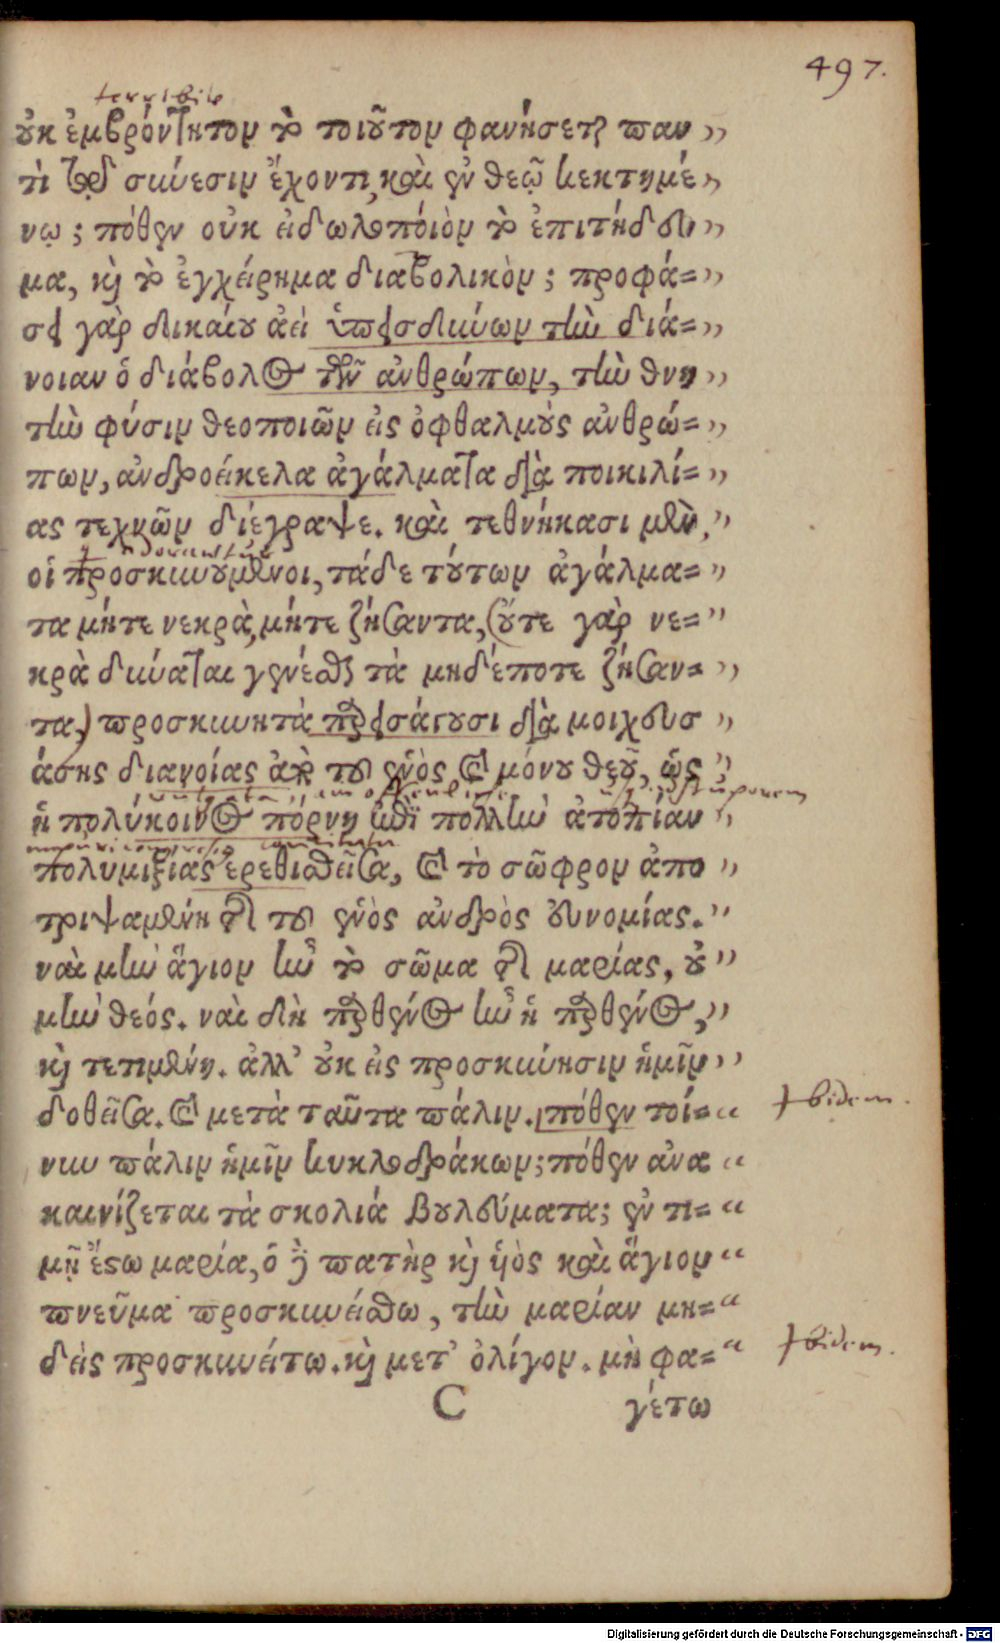 497.
terribile
οὐκ ἐμβρόντητον τὸ τοιοῦτον φανήσεται παν ”
τὶ τῷ σύνεσιν ἔχοντι, καὶ ἐν θεῷ κεκτημέ ”
νῳ; πόθεν οὐκ εἰδωλοποιὸν τὸ ἐπιτήδευ ”
μα, καὶ τὸ ἐγχείρημα διαβολικὸν; προφά= ”
σει γὰρ δικαίου ἀεὶ ὑπεισδύνων τὴν διά= ”
νοιαν ὁ διάβολος τῶν ἀνθρώπων, τὴν θνη ”
τὴν φύσιν θεοποιῶν εἰς ὀφθαλμοὺς ἀνθρώ= ”
πων, ἀνδροείκελα ἀγάλματα διὰ ποικιλί= ”
ας τεχνῶν διέγραψε. καὶ τεθνήκασι μὲν, ”
οἱ προσκυνούμενοι, τάδε τούτων ἀγάλμα= ”
τα μήτε νεκρὰ, μήτε ζήσαντα, (οὔτε γὰρ νε= ”
κρὰ δύναται γενέσθαι τὰ μηδέποτε ζήσαν= ”
τα,) προσκυνητὰ παρεισάγουσι διὰ μοιχευσ ”
άσης διανοίας ἀπὸ τοῦ ἑνὸς καὶ μόνου θεοῦ, ὡς ”
ἡ πολύκοινος πόρνη ἐπὶ πολλὴν ἀτοπίαν ”
πολυμιξίας ἐρεθισθεῖσα, καὶ τὸ σῶφρον ἀπο ”
τριψαμένη τῆς τοῦ ἑνὸς ἀνδρὸς εὐνομίας. ”
ναὶ μὴν ἅγιον ἦν τὸ σῶμα τῆς μαρίας, οὐ ”
μὴν θεός. ναὶ δὴ παρθένος ἦν ἡ παρθένος, ”
καὶ τετιμένη. ἀλλ’ οὐκ εἰς προσκύνησιν ἡμῖν ”
δοθεῖσα. καὶ μετὰ ταῦτα πάλιν. πόθεν τοί= “
Ibidem.
νυν πάλιν ἡμῖν κυκλοδράκων; πόθεν ἀνα “
καινίζεται τὰ σκολιά βουλεύματα; ἐν τι= “
μῇ ἔστω μαρία, ὁ δὲ πατὴρ καὶ υἱὸς καὶ ἅγιον “
πνεῦμα προσκυνείσθω, τὴν μαρίαν μη= “
δεὶς προσκυνείτω. καὶ μετ’ ὀλίγον. μὴ φα= “
Ibidem.
C γέτω
Digitalisierung gefördert durch die Deutsche Forschungsgemeinschaft - DFG